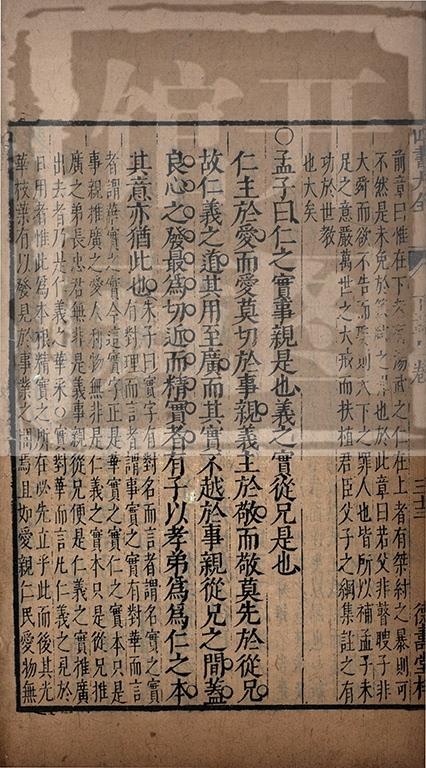 四書大全
三十三
德壽堂梓
前章曰惟在下者有湯武之仁在上者有桀紂之暴則可
不然是未免於篡弑之罪也於此章曰若父非瞽瞍子非
大舜而欲不告而娶則天下之罪人也皆所以補孟子未
足之意嚴萬世之大戒而扶植君臣父子之綱集註之有
功於世教
也大矣
○孟子曰仁之實事親是也義之實從兄是也
仁主於愛而愛莫切於事親義主於敬而敬莫先於從兄
故仁義之道其用至廣而其實不越於事親從兄之間蓋
良心之發最為切近而精實者有子以孝弟為為仁之本
其意亦猶此也
朱子曰實字有對名而言者謂名實之實
有對理而言者謂事實之實有對華而言
者謂華實之實今這實字正是華實之實仁之實本只是
事親推廣之愛人利物無非是仁義之實本只是從兄推
廣之弟長忠君無非是義事親從兄便是仁義之實推廣
出去者乃是仁義之華采○實對華而言凡仁義之見於
日用者惟此為本根精實之所在必先立乎此而後其光
華枝葉有以發見於事業之間焉且如愛親仁民愛物無